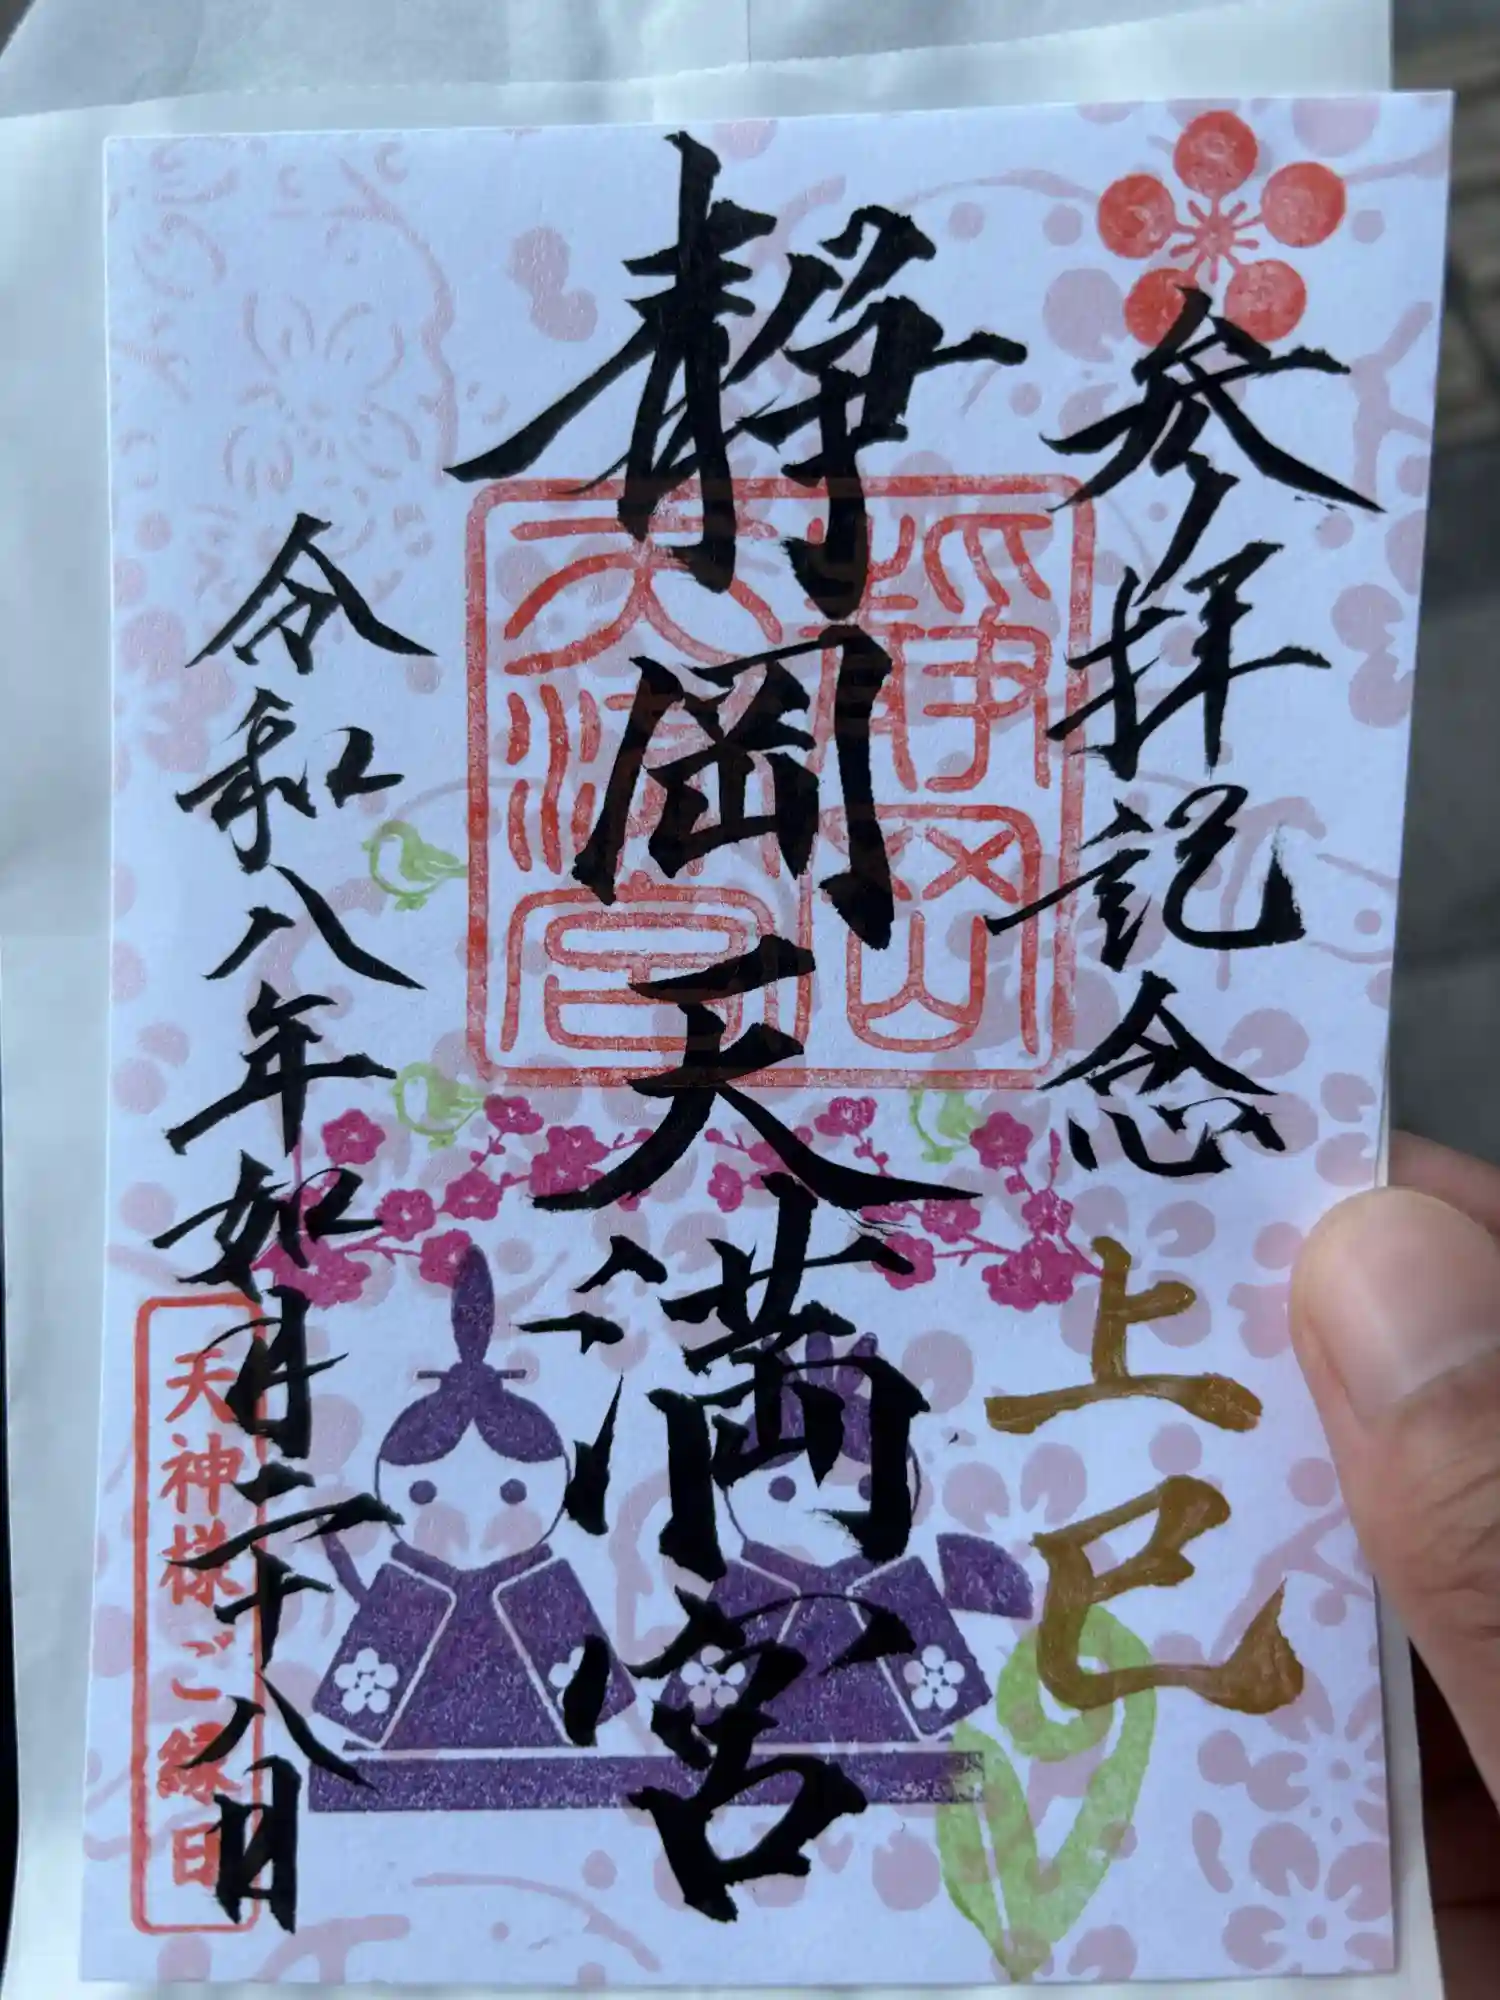 参拝記念
上巳
静岡天満宮
静岡
天満宮
令和八年如月二十八日
天神様ご縁日